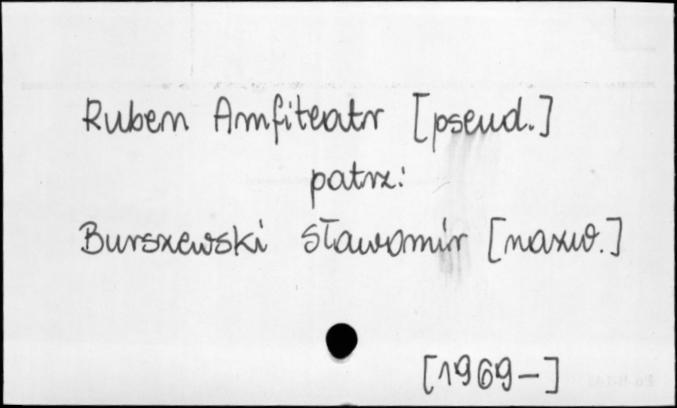 Ruben Amfiteatr [pseud.]
patrz:
Burszewski Sławomir [nazw.]
[1969-]